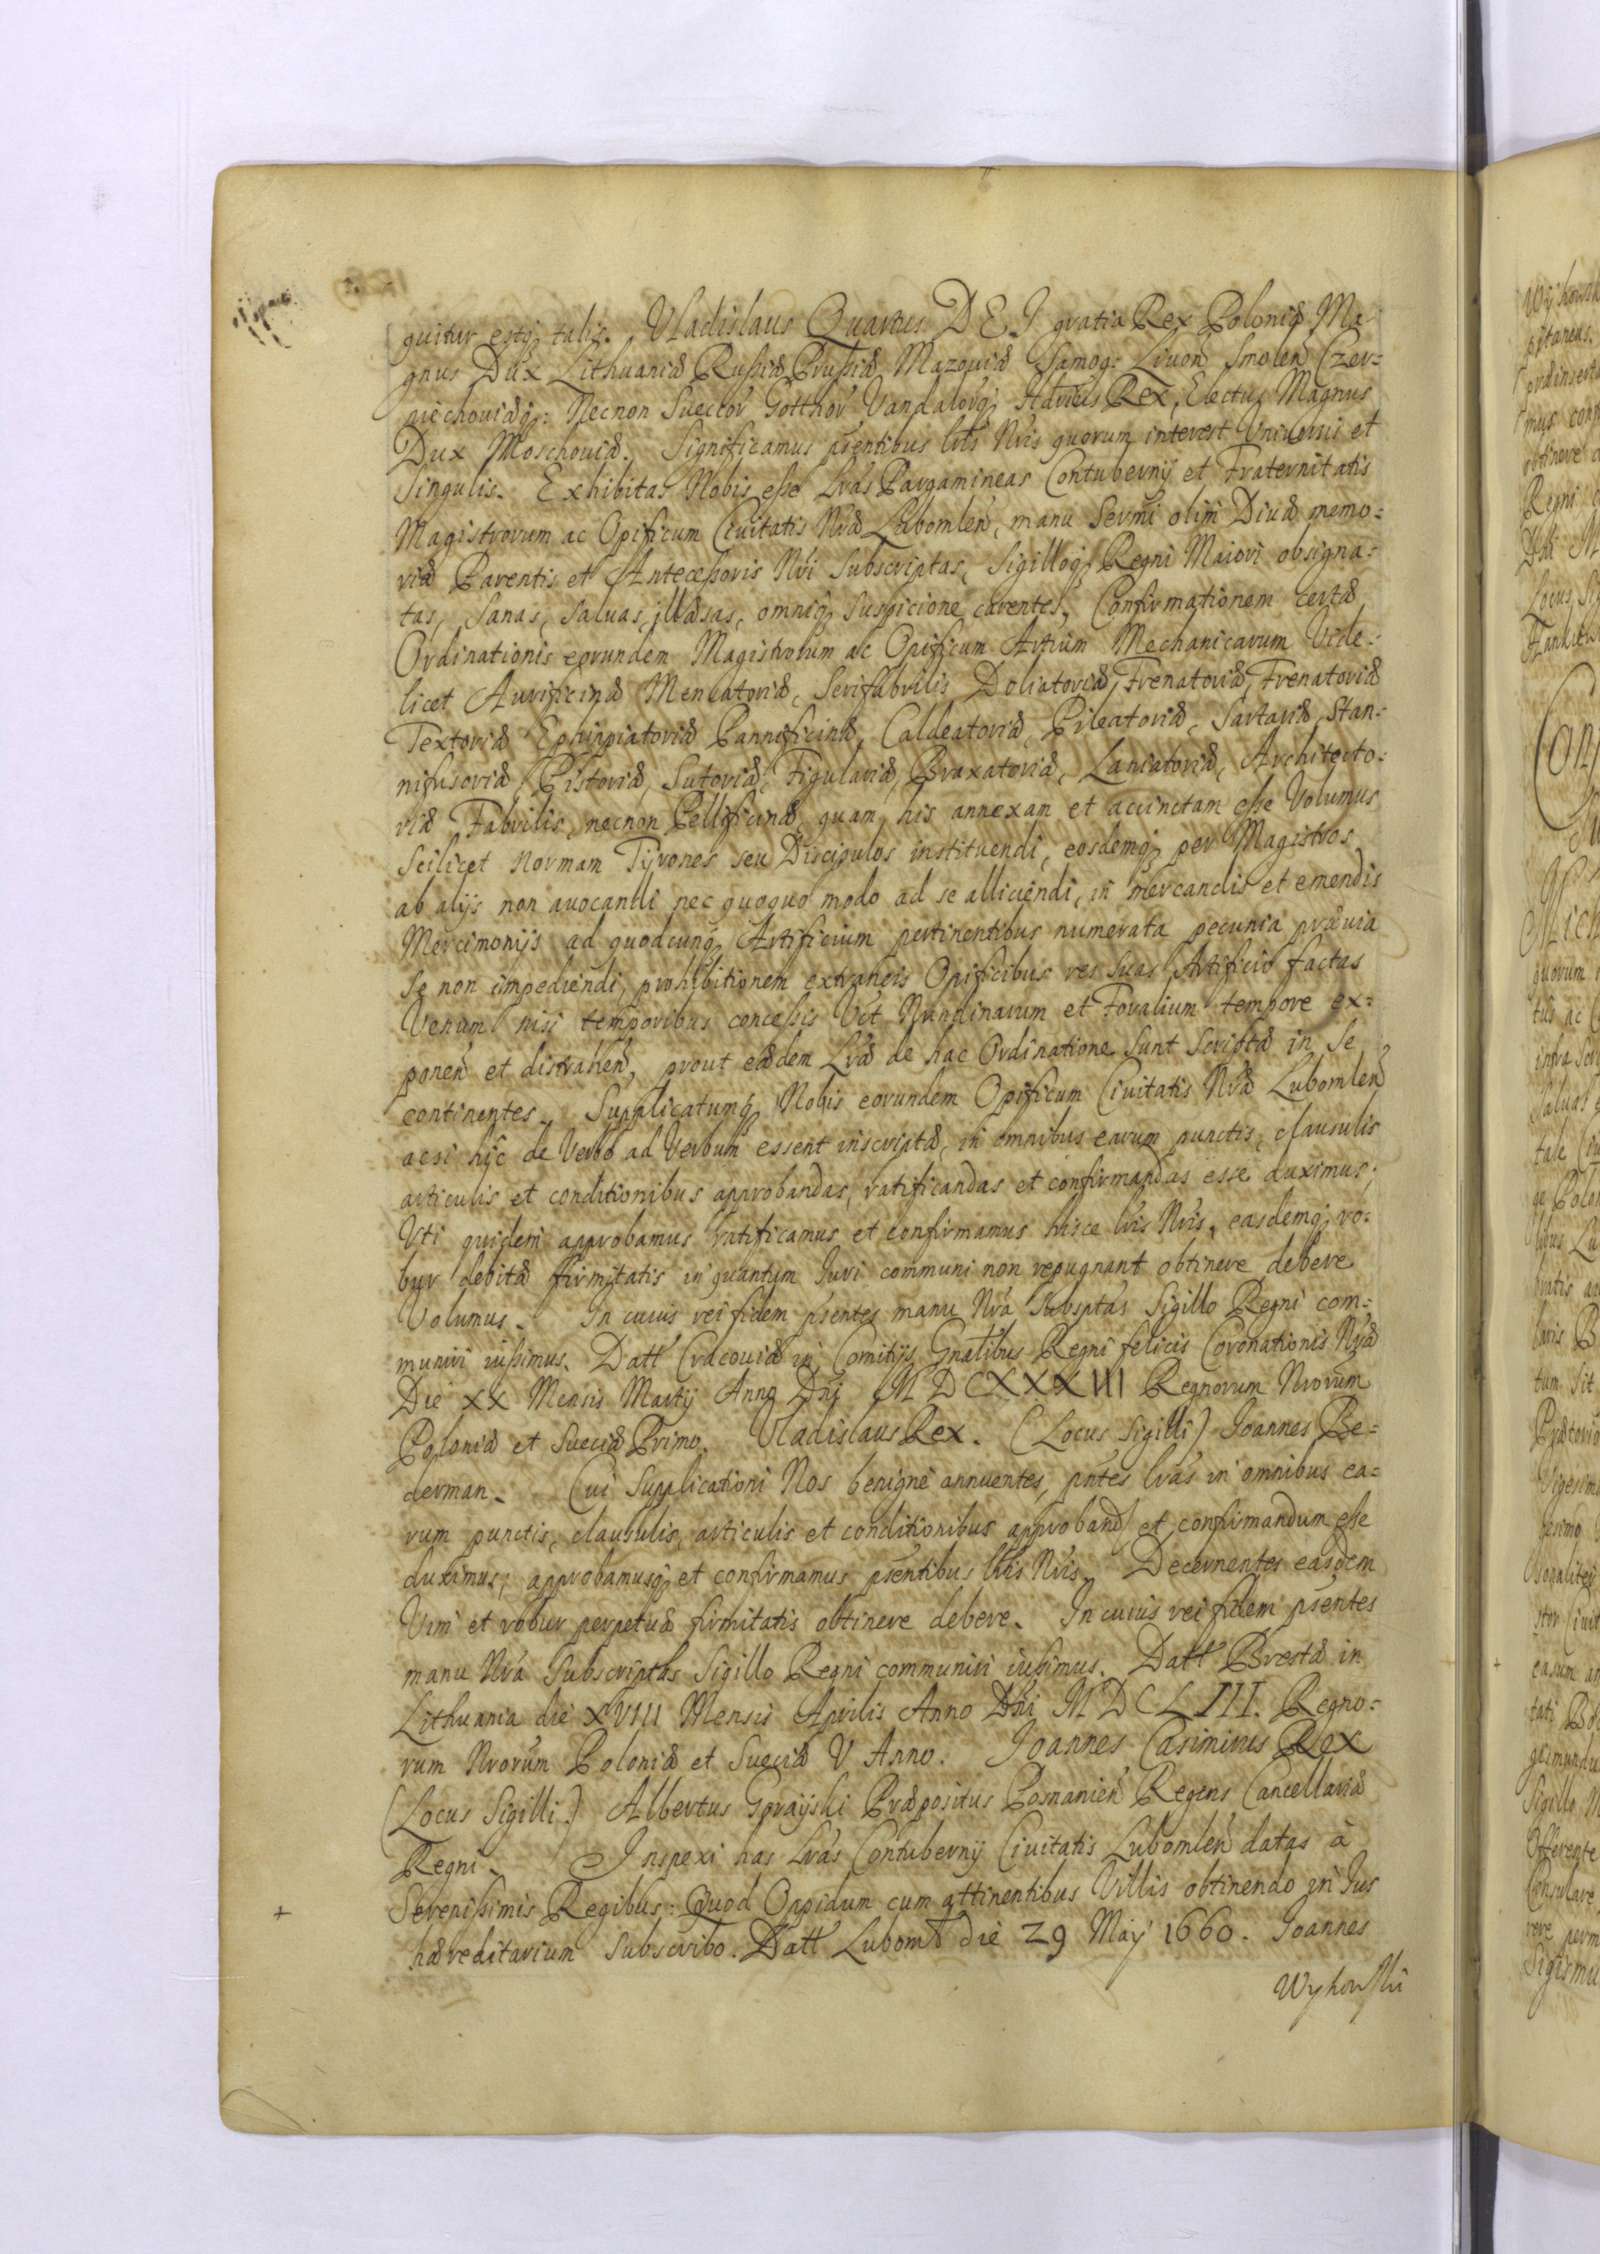 quitur estq; talis. Vladislaus Quartus DEI gratia Rex Poloniæ Ma-
gnus Dux Lithuaniæ Rußiæ Prußiæ Mazouiæ Samog: Liuoñ Smoleñ Czer-
niechouiæq;: Necnon Suecor Gotthor Vandalorq; Hæreds Rex, Electus Magnus
Dux Moschouiæ. Significamus pñtibus lrīs Nrīs quorum interest Vniuersis et
Singulis. Exhibitas Nobis eße Lrās Pargamineas Contubernij et Fraternitatis
Magistrorum ac Opificum Ciuitatis Nræ Lubomleñ, manu Sermī olim Diuæ memo-
riæ Parentis et Anteceßoris Nrī Subscriptas, Sigilloq; Regni Maiori obsigna-
tas, Sanas, Saluas, illæsas, omniq; Suspicione carentes, Confirmationem certæ
Ordinationis eorundem Magistrorum ac Opificum Artium Mechanicarum Vide-
licet Aurificinæ Mercatoriæ, Serifabrilis Doliatoriæ, Frenatoriæ, Frenatoriæ
Textoriæ Ephippiatoriæ Pannificinæ, Caldeatoriæ, Pileatoriæ, Sartoriæ, Stan-
nifusoriæ Pistoriæ, Sutoriæ, Figulariæ, Braxatoriæ, Laniatoriæ, Architecto-
riæ Fabrilis, necnon Pellificinæ, quam his annexam et acuinctam eße Volumus
Scilicet Normam Tyrones seu Discipulos instituendi, eosdemq; per Magistros
ab alijs non auocandi nec quoquo modo ad se alliciendi, in mercandis et emendis
Mercimonijs ad quodcunq; Artificium pertinentibus numerata pecunia præuia
se non impediendi, prohibitionem extraneis Opificibus res Suas Artificio factas
Venum nisi temporibus conceßis Vít Nundinarum et Foralium tempore ex-
poneñ et distraheñ, prout eædem Lræ de hac Ordinatione Sunt Scriptæ in Se
continentes. Supplicatumq; Nobis eorundem Opificum Ciuitatis Nræ Lubomleñ
acsi hîc de Verbo ad Verbum essent inscriptæ, in omnibus earum punctis, clausulis
articulis et conditionibus approbandas, ratificandas et confirmandas esse duximus;
Vti quidem approbamus ratificamus et confirmamus hisce lrīs Nrīs, easdemq; ro-
bur debitæ firmitatis in quantum Iuri communi non repugnant obtinere debere
Volumus. In cuius rei fidem psentes manu Nrā Subsptas Sigillo Regni com-
muniri iußimus. Datt Cracouiæ in Comitijs Gnalibus Regni felicis Coronationis Nræ
Die XX Mensis Martij Anno Dnī MDCXXXIII Regnorum Nrorum
Poloniæ et Sueciæ Primo. Vladislaus Rex. (Locus Sigilli) Ioannes Be-
derman. Cui Supplicationi Nos benigne annuentes, pntes lrās in omnibus ea-
rum punctis, clausulis, articulis et conditionibus approband et confirmandum eße
duximus; approbamusq; et confirmamus psentibus lrīs Nrīs. Decernentes easdem
Vim et robur perpetuæ firmitatis obtinere debere. In cuius rei fidem psentes
manu Nrā Subscriptas Sigillo Regni communiri iußimus. Datt Brestæ in
Lithuania die XVIII Mensis Aprilis Anno Dnī MDCLIII. Regno-
rum Nrorum Poloniæ et Sueciæ V Anno. Ioannes Casimirus Rex
(Locus Sigilli) Albertus Goraÿski Præpositus Posnanieñ Regens Cancellariæ
Regni. Inspexi has Lrās Contubernij Ciuitatis Lubomleñ datas à
Sereniſsimis Regibus: Quod Oppidum cum attinentibus Villis obtinendo in Ius
hæreditarium Subscribo. Datt Luboml die 29 Maÿ 1660. Ioannes
Wyhowski